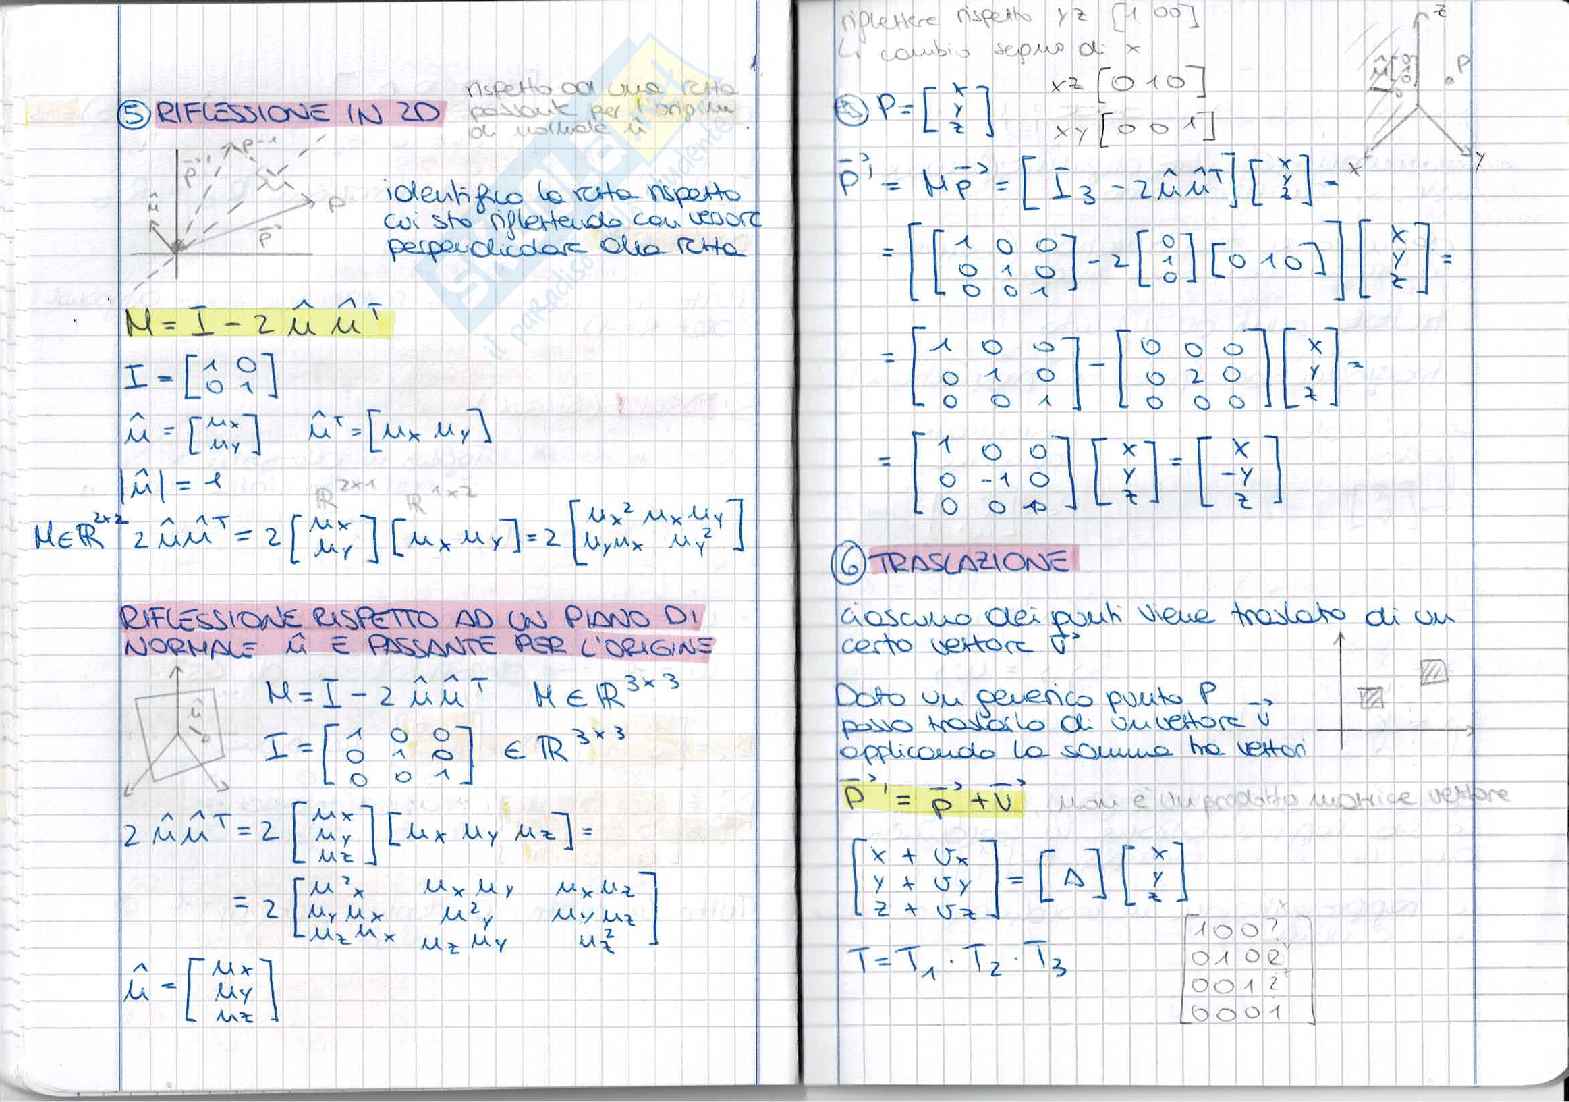 ⑤ RIFLESSIONE IN 2D
rispetto ad una retta
passante per l'origine
di normale û
identifico la retta rispetto
cui sto riflettendo con versore
perpendicolare alla retta
M = I - 2 û û^T
I = [1 0; 0 1]
û = [ux; uy] û^T = [ux uy]
|û| = 1
R^2×1 R^1×2
M ∈ R^2×2 2 û û^T = 2 [ux; uy] [ux uy] = 2 [ux² uxuy; uyux uy²]
RIFLESSIONE RISPETTO AD UN PIANO DI
NORMALE û E PASSANTE PER L'ORIGINE
M = I - 2 û û^T M ∈ R^3×3
I = [1 0 0; 0 1 0; 0 0 1] ∈ R^3×3
2 û û^T = 2 [ux; uy; uz] [ux uy uz] =
= 2 [u²x uxuy uxuz; uyux u²y uyuz; uzux uzuy uz²]
û = [ux; uy; uz]
riflettere rispetto yz [1 0 0]
↳ cambio segno di x
xz [0 1 0]
xy [0 0 1]
P = [x; y; z]
p⃗' = M p⃗ = [I3 - 2 û û^T] [x; y; z] =
= [[1 0 0; 0 1 0; 0 0 1] - 2 [0; 1; 0] [0 1 0]] [x; y; z] =
= [1 0 0; 0 1 0; 0 0 1] - [0 0 0; 0 2 0; 0 0 0] [x; y; z] =
= [1 0 0; 0 -1 0; 0 0 1] [x; y; z] = [x; -y; z]
⑥ TRASLAZIONE
ciascuno dei punti viene traslato di un
certo vettore v⃗
Dato un generico punto P
posso traslarlo di un vettore v⃗
applicando la somma tra vettori
p⃗' = p⃗ + v⃗ non è un prodotto matrice vettore
[x + vx; y + vy; z + vz] = [A] [x; y; z]
T = T1 · T2 · T3
[1 0 0 ?; 0 1 0 ?; 0 0 1 ?; 0 0 0 1]